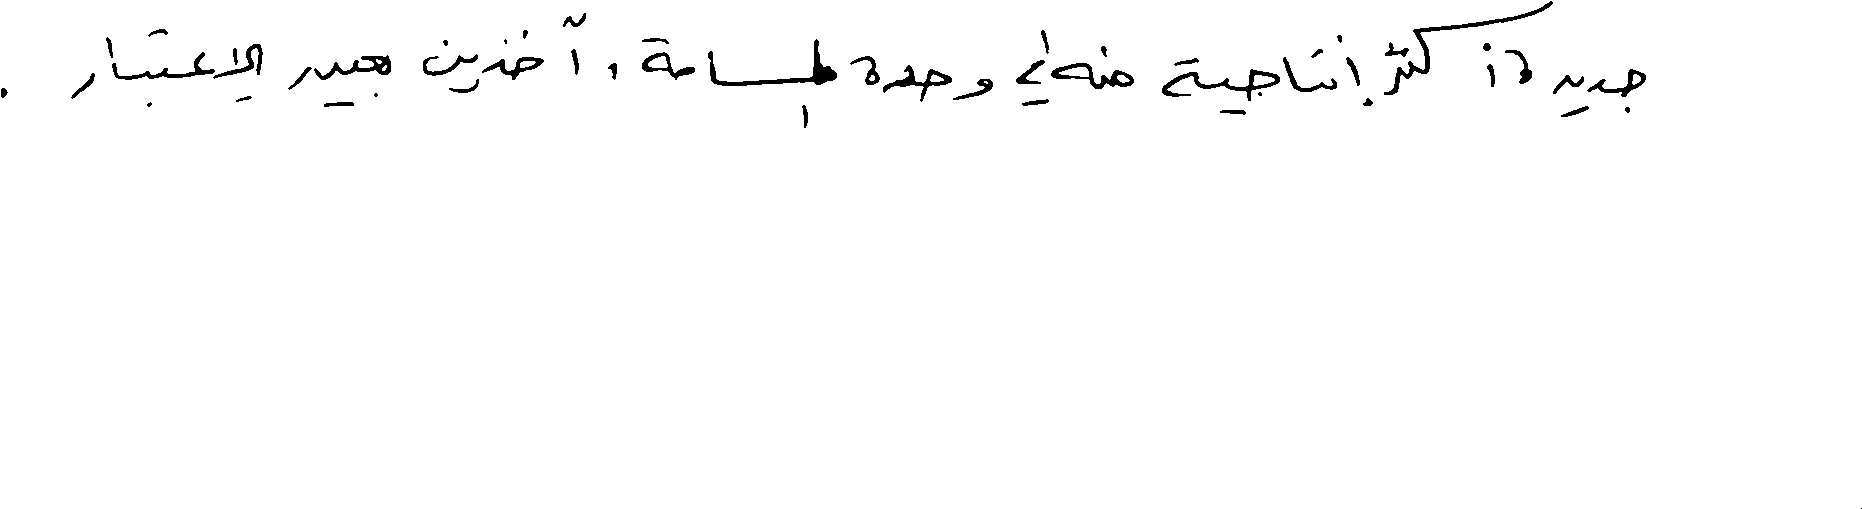 جديدة أكثر إنتاجية منه في وحدة المساحة ، آخذين بعين الاعتبار .